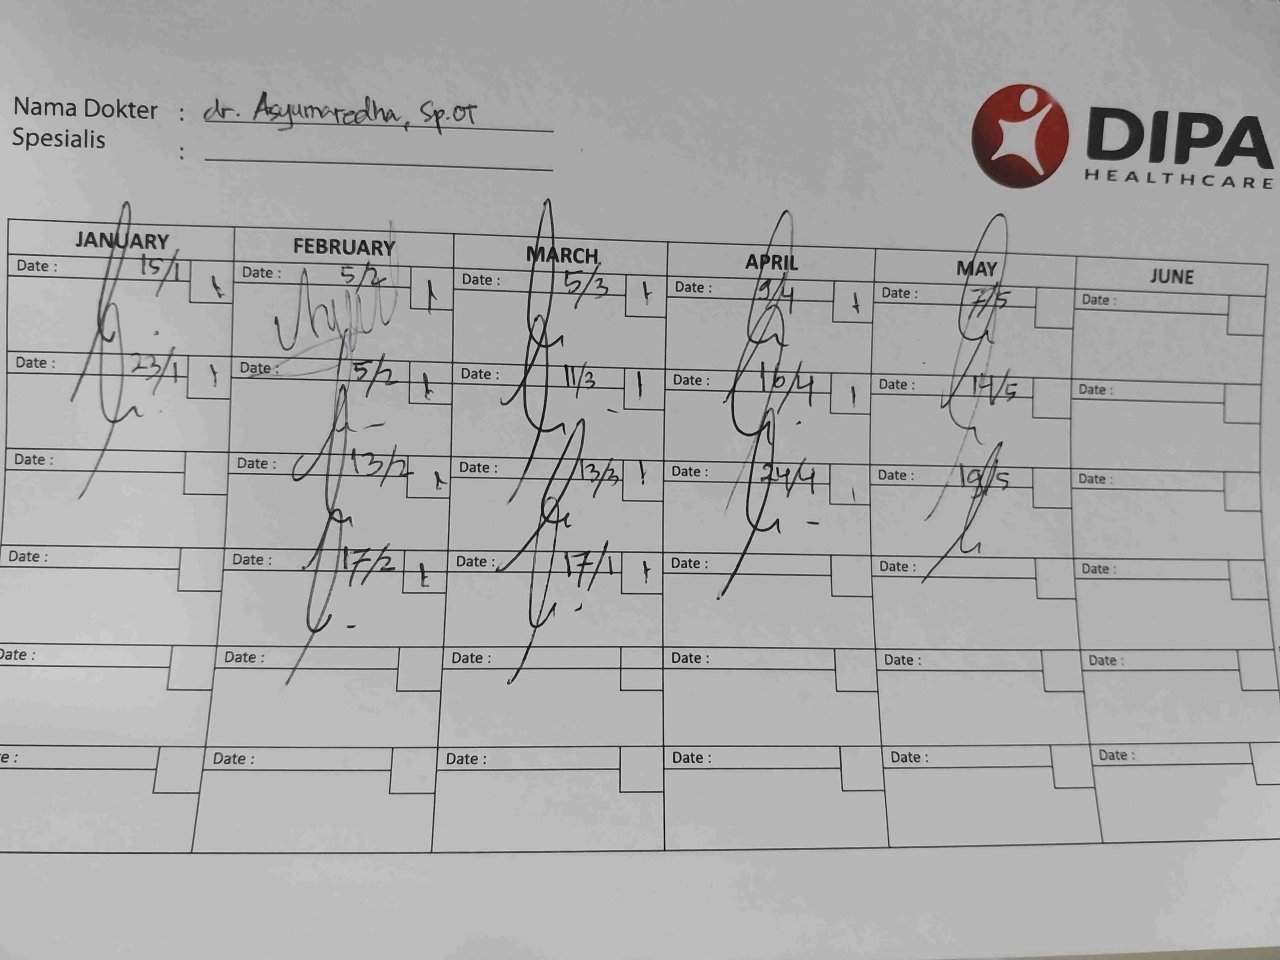 Nama Dokter : dr. Asyumaredha, Sp.OT
Spesialis :
DIPA
HEALTHCARE
JANUARY FEBRUARY MARCH APRIL MAY JUNE
Date : 15/1 Date : 5/2 Date : 5/3 Date : 9/4 Date : 7/5 Date :
Date : 23/1 Date : 5/2 Date : 11/3 Date : 16/4 Date : 14/5 Date :
Date : Date : 13/2 Date : 13/3 Date : 24/4 Date : 19/5 Date :
Date : Date : 17/2 Date : 17/1 Date : Date : Date :
Date : Date : Date : Date : Date : Date :
e : Date : Date : Date : Date : Date :